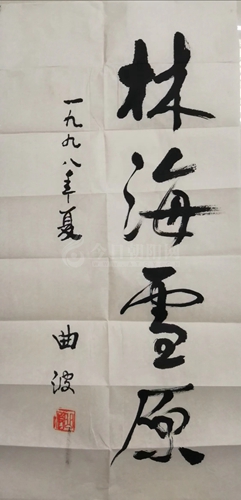 林海雪原
一九九八年夏
曲波